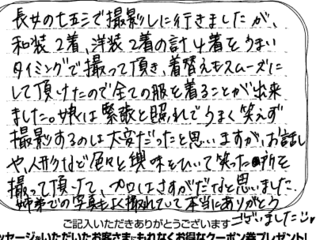 長女の七五三で撮影しに行きましたが、
和装2着、洋装2着の計4着をうまい
タイミングで撮って頂き、着替えもスムーズに
して頂けたので全ての服を着ることが出来
ました。娘は緊張と照れでうまく笑えず
撮影するのは大変だったと思いますが、お話し
や人形など色々と興味をひいて笑った所を
撮って頂けて、プロはさすがだなと思いました。
姉弟での写真もよく撮れていて本当にありがとう
ございました
ご記入いただきありがとうございます
ッセージをいただいたお客さまにもれなくお得なクーポン券プレゼント!